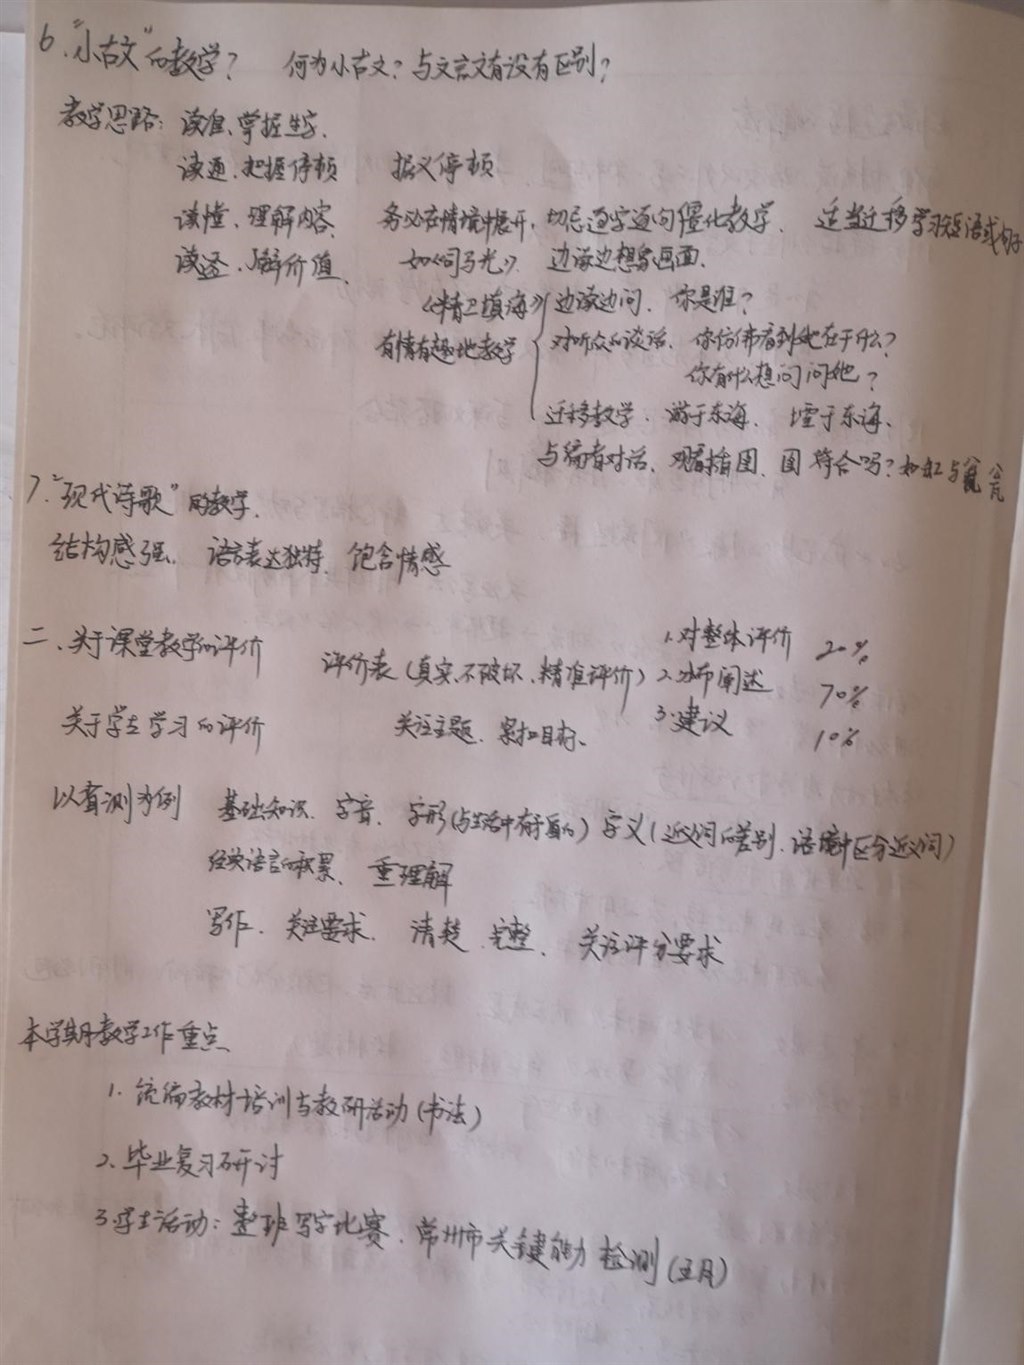 6."小古文"的教学？ 何为小古文？与文言文有没有区别？
教学思路：读准、掌握生字、
读通、把握停顿 据义停顿
读懂、理解内容、 务必在情境中展开，切忌逐字逐句僵化教学、 适当迁移学习短语或句子
读透、了解价值、 如《司马光》、 边读边想象画面、
《精卫填海》 边读边问、你是谁？
有情有趣地教学 对听众的谈话、你仿佛看到她在干什么？
你有什么想问问她？
迁移教学、游于东海、堙于东海、
与编者对话、观看插图、图符合吗？如缸与瓮
7."现代诗歌"的教学、
结构感强、 语言表达独特、饱含情感
二、关于课堂教学的评价 评价表（真实、不破坏、精准评价） 1.对整体评价 20%
2.分布阐述 70%
关于学生学习的评价 关注主题、紧扣目标、 3.建议 10%
以育测为例 基础知识、字音、字形（与生活中有 的）字义（近义词的差别、语境中区分近义词）
经典语言的积累、 重理解
写作、关注要求、 清楚、完整、 关注评分要求
本学期教学工作重点
1.统编教材培训与教研活动（书法）
2.毕业复习研讨
3.学生活动：整班写字比赛、常州市关键能力检测（五月）